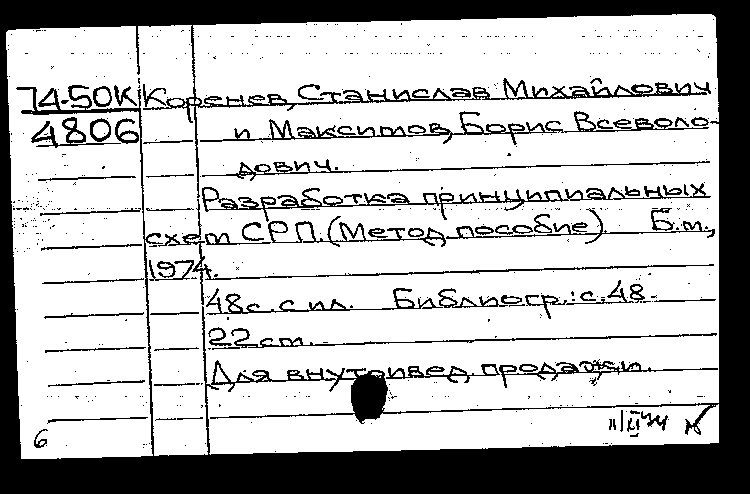 74-50К Коренев, Станислав Михайлович
4806 и Максимов, Борис Всеволо-
дович.
Разработка принципиальных
схем СРП. (Метод. пособие). Б.м.,
1974.
48с. с ил. Библиогр.: с. 48.
22 см.
Для внутривед. продажи.
6